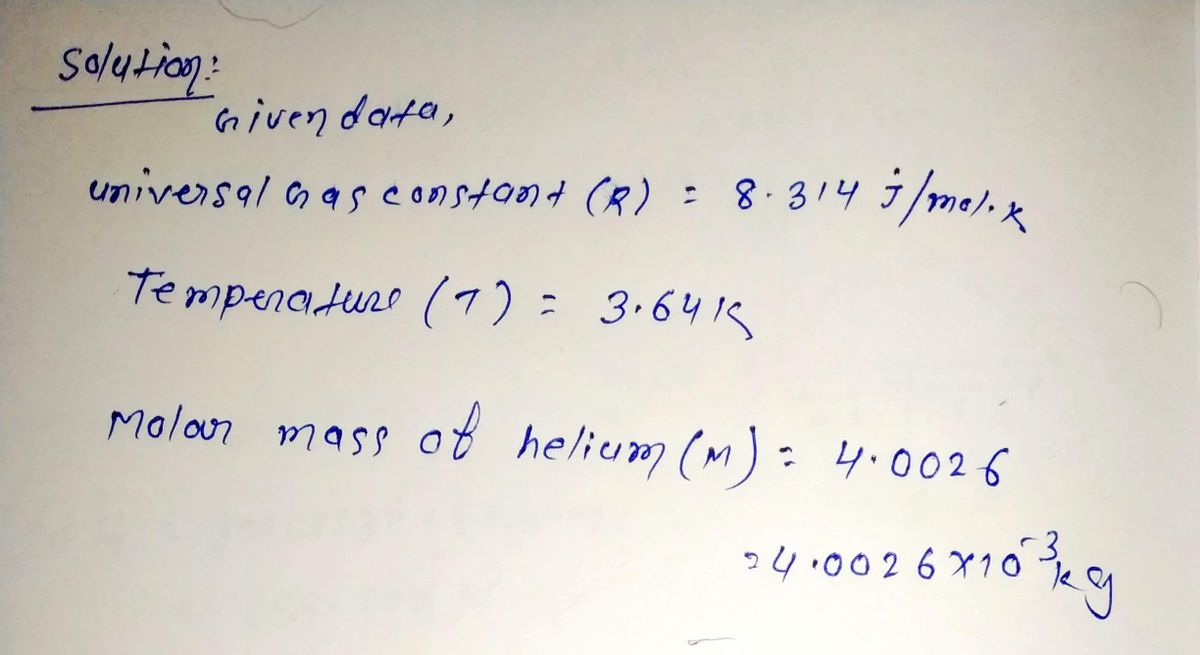 Solution:
Given data,
universal Gas constant (R) = 8.314 J/mol.K
Temperature (T) = 3.64 K
Molar mass of helium (M) = 4.0026
= 4.0026 × 10⁻³ kg